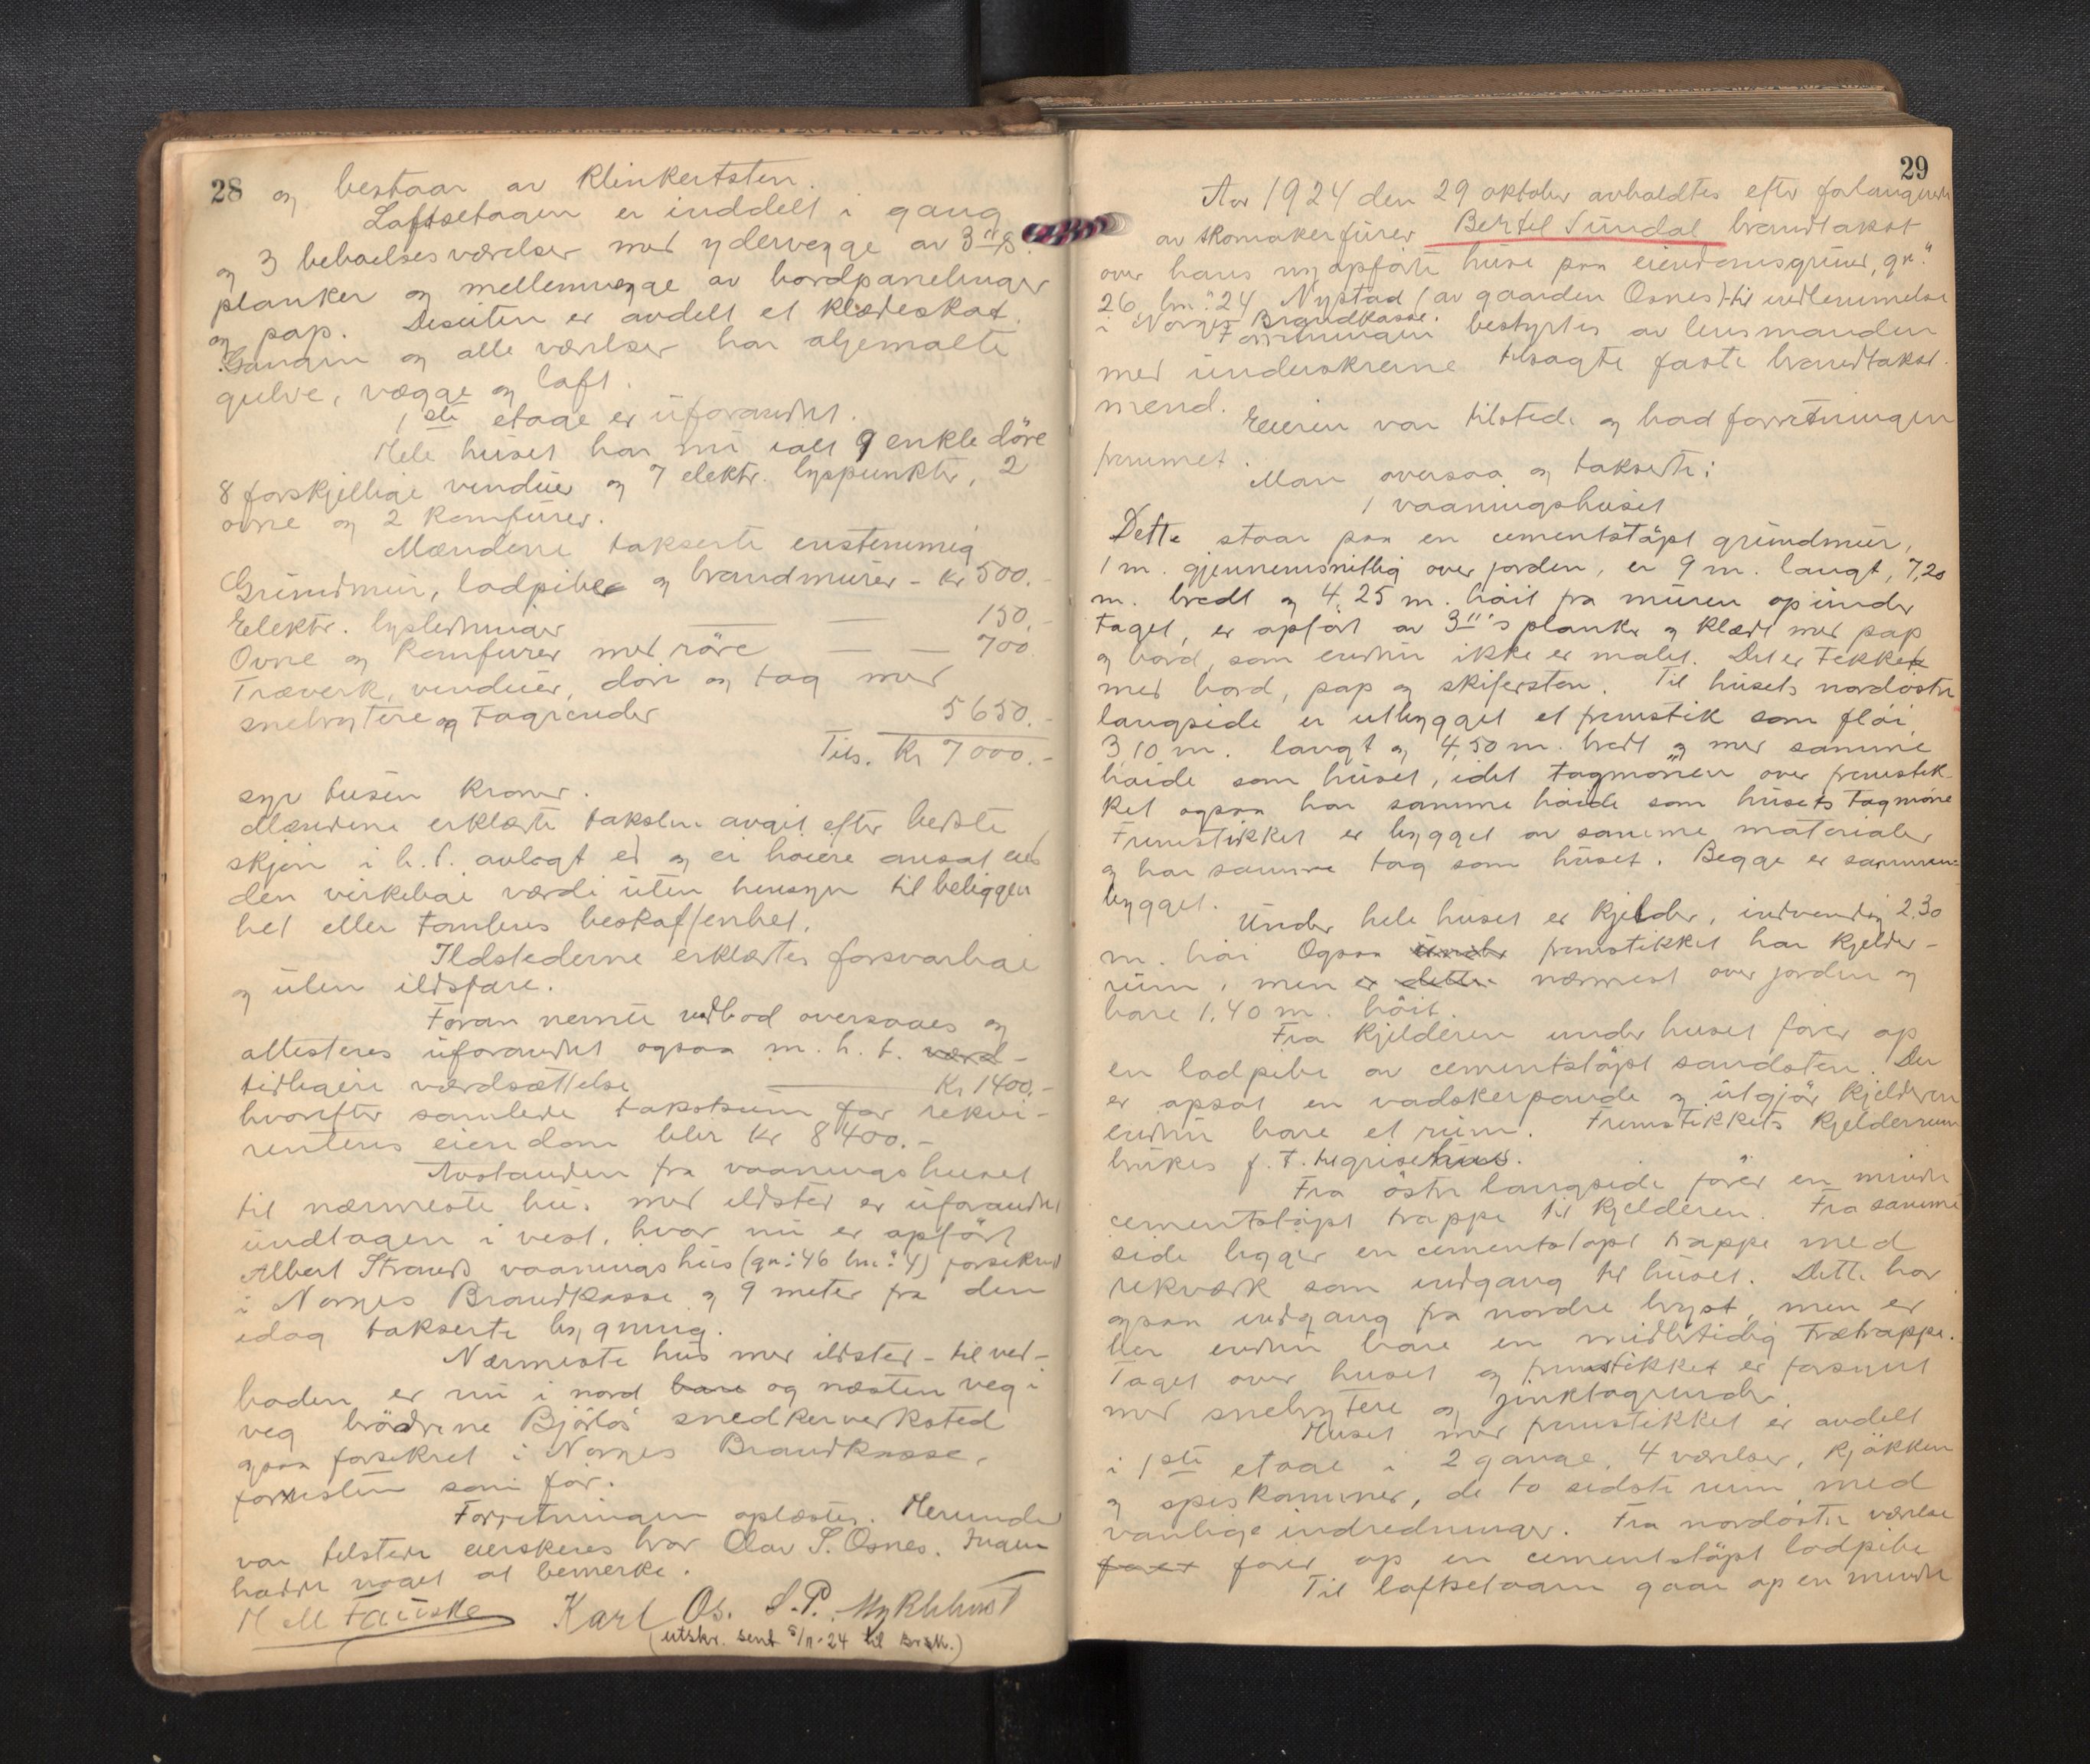 28 og bestaar av klinkertsten.
Loftsetagen er inddelt i gang
og 3 beboelsesværelser med ydervegge av 3"s
planker og mellemvægge av bordpanelinger
og pap. Desuten er avdelt et klædeskot.
Gangen og alle værelser har oljemalte
gulve, vægge og loft.
1ste etage er uforandret.
Hele huset har nu ialt 9 enkle döre
8 forskjellige vinduer og 7 elektr. lyspunkter, 2
ovne og 2 komfurer.
Mændene takserte enstemmig
Grundmur, lodpiber og brandmurer - kr 500.-
Elektr. lysledninger — — 150.-
Ovne og komfurer med röre — — 700.
Træverk, vinduer, döre og tag med
snebrytere og tagrender 5650.-
Tils. Kr 7000.-
syv tusen kroner.
Mændene erklærte taksten avgit efter bedste
skjön i h.t. avlagt ed og ei höiere ansat end
den virkelige værdi uten hensyn til beliggen
het eller tomtens beskaffenhet.
Ildstederne erklærtes forsvarlige
og uten ildsfare.
Foran nevnte vedbod oversaaes og
attesteres uforandret ogsaa m.h.t. værd-
tidligere værdsættelse — Kr 1400.-
hvorefter samlede takstsum for rekvi-
rentens eiendom blir Kr 8400.-
Avstanden fra vaaningshuset
til nærmeste hus med ildsted er uforandret
undtagen i vest, hvor nu er opfört
Albert Strands vaaningshus (gn: 46 bn: 4) forsikret
i Norges Brandkasse og 9 meter fra den
idag takserte bygning.
Nærmeste hus med ildsted - til ved-
boden er nu i nord bare og næsten veg i
veg brödrene Bjørlo's snedkerverksted
ogsaa forsikret i Norges Brandkasse,
forresten som för.
Forretningen oplæstes. Herunder
var tilstede eierskens bror Olav S. Osnes. Ingen
hadde noget at bemerke.
H M Fauske Karl Os. S.P. Myklebust
(utskr. sent 5/11-24 til Brsk.)
29
Aar 1924 den 29 oktober avholdtes efter forlangende
av skomakerfurer Bertel Sundal brandtakst
over hans nyopförte huse paa eiendomsgrund, gn:
26, bn: 24 Nystad (av gaarden Osnes) til indlemmelse
i Norges Brandkasse.
Forretningen bestyrtes av lensmanden
med underskrevne tilsagte faste brandtakst-
mend.
Eieren var tilstede og bad forretningen
fremmet.
Man oversaa og takserte:
1 vaaningshuset
Dette staar paa en cementstöpt grundmur,
1 m. gjennemsnitlig over jorden, er 9 m. langt, 7,20
m. bredt og 4,25 m. höit fra muren op under
taget, er opfört av 3"s planker og klædt med pap
og bord, som endnu ikke er malet. Det er tekket
med bord, pap og skifersten. Til husets nordöstre
langside er utbygget et fremstik som flöi
3,10 m. langt og 4,50 m. bredt og med samme
höide som huset, idet tagmönen over fremstik-
ket ogsaa har samme höide som husets tagmöne
Fremstikket er bygget av samme materialer
og har samme tag som huset. Begge er sammen=
bygget.
Under hele huset er kjelder, indvendig 2.30
m. höi Ogsaa under fremstikket har kjelder-
rum, men er dette nærmest over jorden og
bare 1.40 m. höit.
Fra kjelderen under huset förer op
en lodpibe av cementstöpt sandsten. Der
er opsat en vaskerpande og utgjör kjelderen
endnu bare et rum. Fremstikkets kjelderrum
brukes f.t. til grisehus.
Fra östre langside förer en mindre
cementstöpt trappe til kjelderen. Fra samme
side ligger en cementstöpt trappe med
rekværk som indgang til huset. Dette har
ogsaa indgang fra nordre bryst, men er
her endnu bare en midlertidig trætrappe.
Taget over huset og fremstikket er forsynt
med snebrytere og zinktagrender.
Huset med fremstikket er avdelt
i 1ste etage i 2 gange, 4 værelser, kjökken
og spiskammer, de to sidste rum med
vanlige indredninger. Fra nordöstre værelse
förer förer op en cementstöpt lodpibe
Til loftsetagen gaar op en mindre